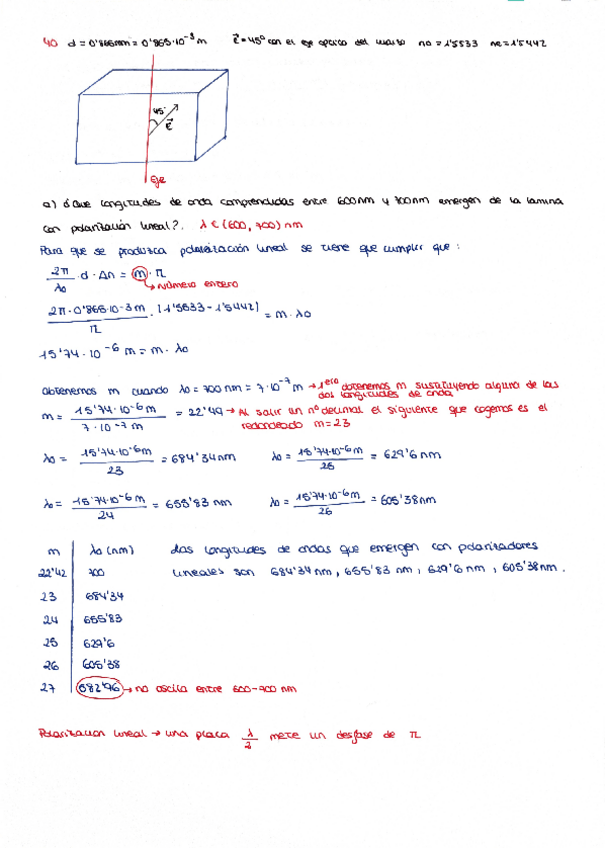 40 d = 0'865mm = 0'865·10⁻³ m E = 45º con el eje óptico del cuarzo no = 1'5533 ne = 1'5442
45º
E
Eje
a) ¿Que longitudes de onda comprendidas entre 600nm y 700nm emergen de la lamina
con polarización lineal?. λ ∈ (600, 700) nm
Para que se produzca polarización lineal se tiene que cumplir que:
2π/λo · d · Δn = m · π
→ número entero
2π · 0'865·10⁻³m / π · |1'5533 - 1'5442| = m · λo
15'74 · 10⁻⁶ m = m · λo
obtenemos m cuando λo = 700nm = 7·10⁻⁷ m → 1ero obtenemos m sustituyendo alguna de las
dos longitudes de onda
m = 15'74·10⁻⁶m / 7·10⁻⁷m = 22'49 → Al salir un nº decimal el siguiente que cogemos es el
redondeado m=23
λo = 15'74·10⁻⁶m / 23 = 684'34nm λo = 15'74·10⁻⁶m / 25 = 629'6 nm
λo = 15'74·10⁻⁶m / 24 = 655'83 nm λo = 15'74·10⁻⁶m / 26 = 605'38nm
m λo (nm) Las longitudes de ondas que emergen con polarizadores
22'42 700 lineales son 684'34nm, 655'83 nm, 629'6 nm, 605'38nm.
23 684'34
24 655'83
25 629'6
26 605'38
27 582'96 → no oscila entre 600-700 nm
Polarizacion lineal → una placa λ/2 mete un desfase de π